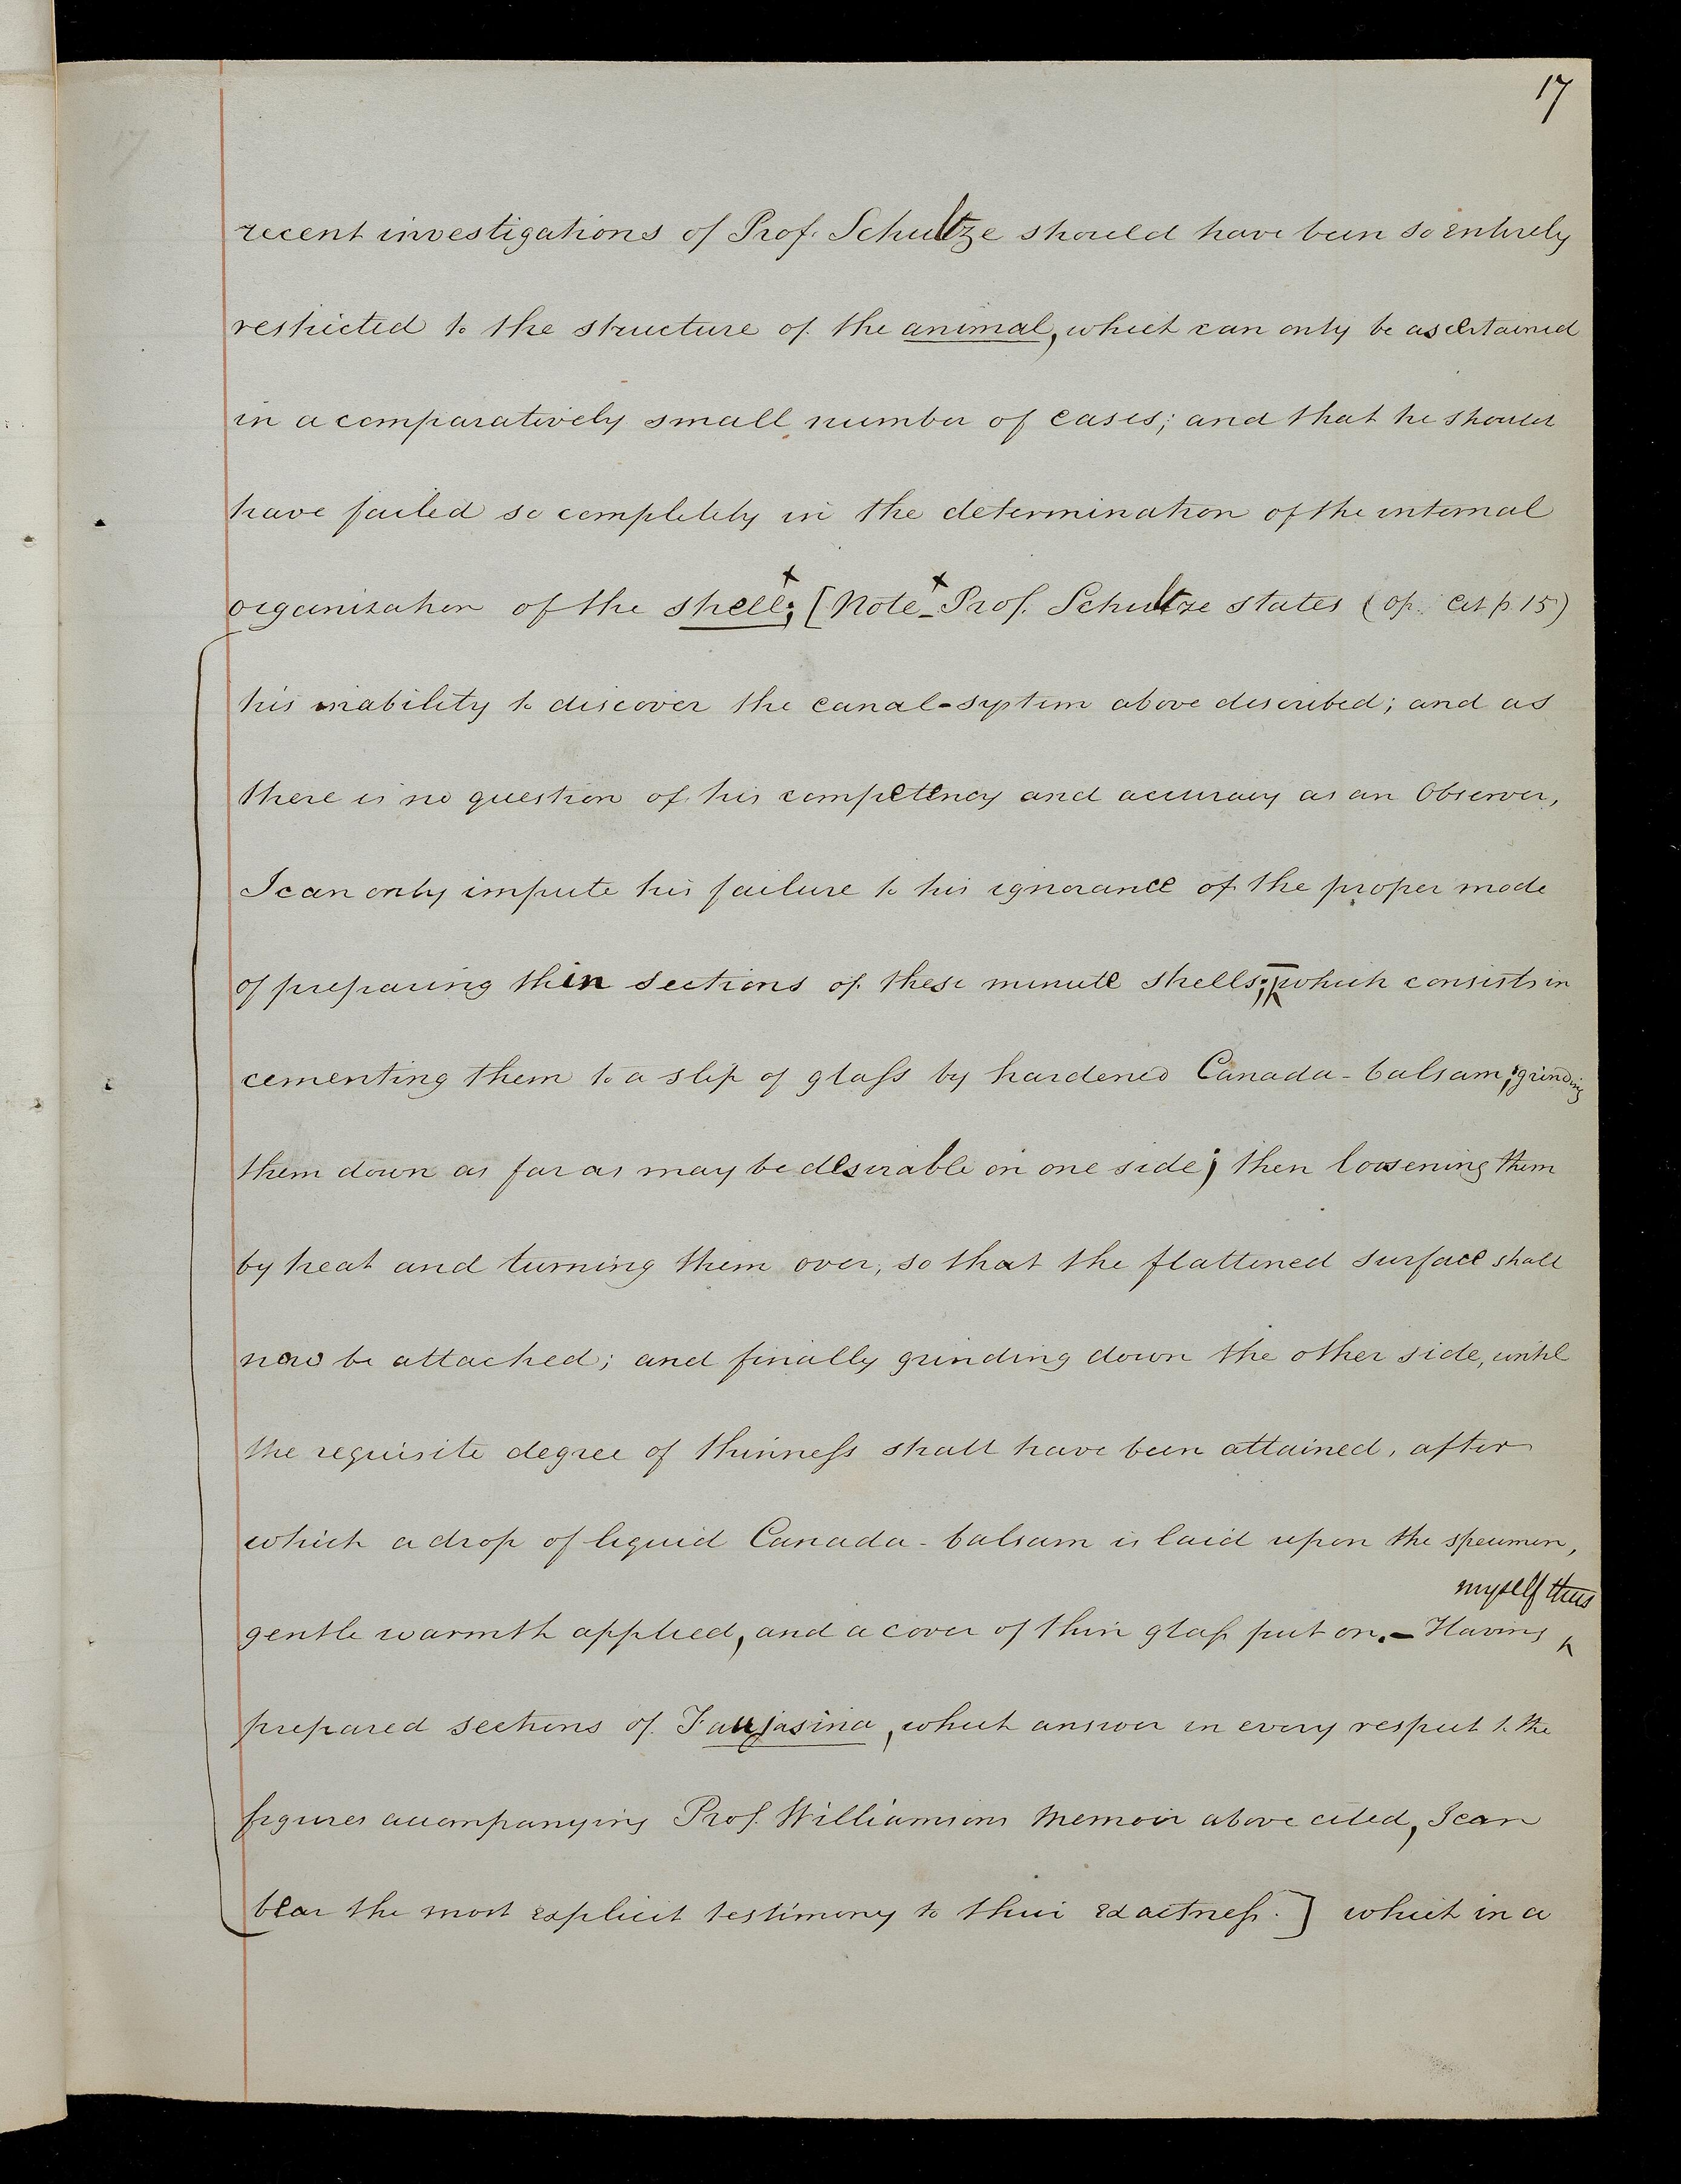 17
recent investigations of Prof. Schultze should have been so entirely
restricted to the structure of the animal, which can only be ascertained
in a comparatively small number of cases; and that he should
have failed so completely in the determination of the internal
organization of the shell;x [Note x_ Prof. Schultze states (op. cit p. 15)
his inability to discover the canal-system above described; and as
there is no question of his competency and accuracy as an Observer,
I can only impute his failure to his ignorance of the proper mode
of preparing thin sections of these minute shells;– which consists in
cementing them to a slip of glass by hardened Canada-balsam; grinding
them down as far as may be desirable on one side; then loosening them
by heat and turning them over, so that the flattened surface shall
now be attached; and finally grinding down the other side, until
the requisite degree of thinness shall have been attained, after
which a drop of liquid Canada-balsam is laid upon the specimen,
myself thus
gentle warmth applied, and a cover of thin glass put on.– Having ^
prepared sections of Faujasina, which answer in every respect to the
figures accompanying Prof. Williamsons Memoir above cited, I can
bear the most explicit testimony to their exactness.] which in a